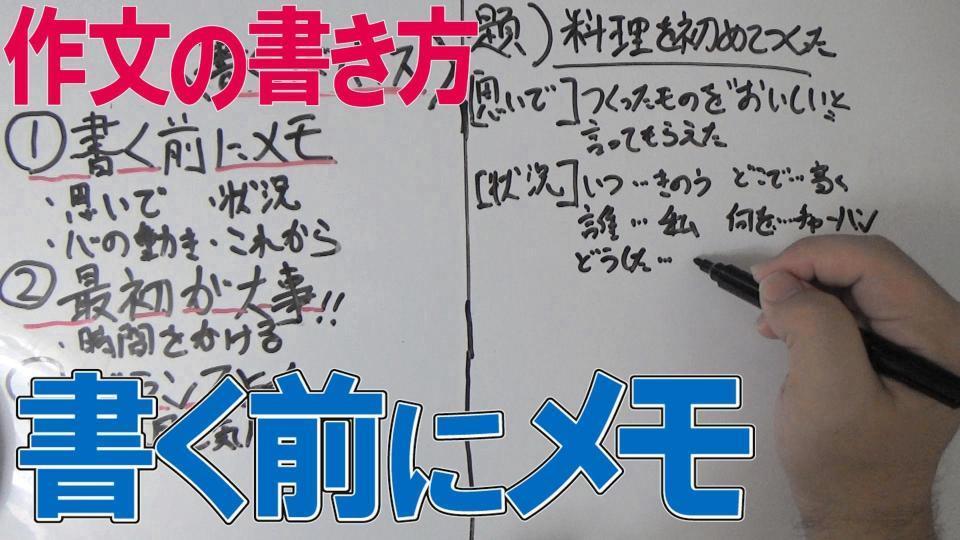 作文の書き方
①書く前にメモ
・思いで ・状況
・心の動き・これから
②最初が大事!!
・時間をかける
書く前にメモ
題)料理を初めてつくった
[思いで]つくったものを"おいしい"と
言ってもらえた
[状況]いつ…きのう どこで…
誰…私 何を…チャーハン
どうした…